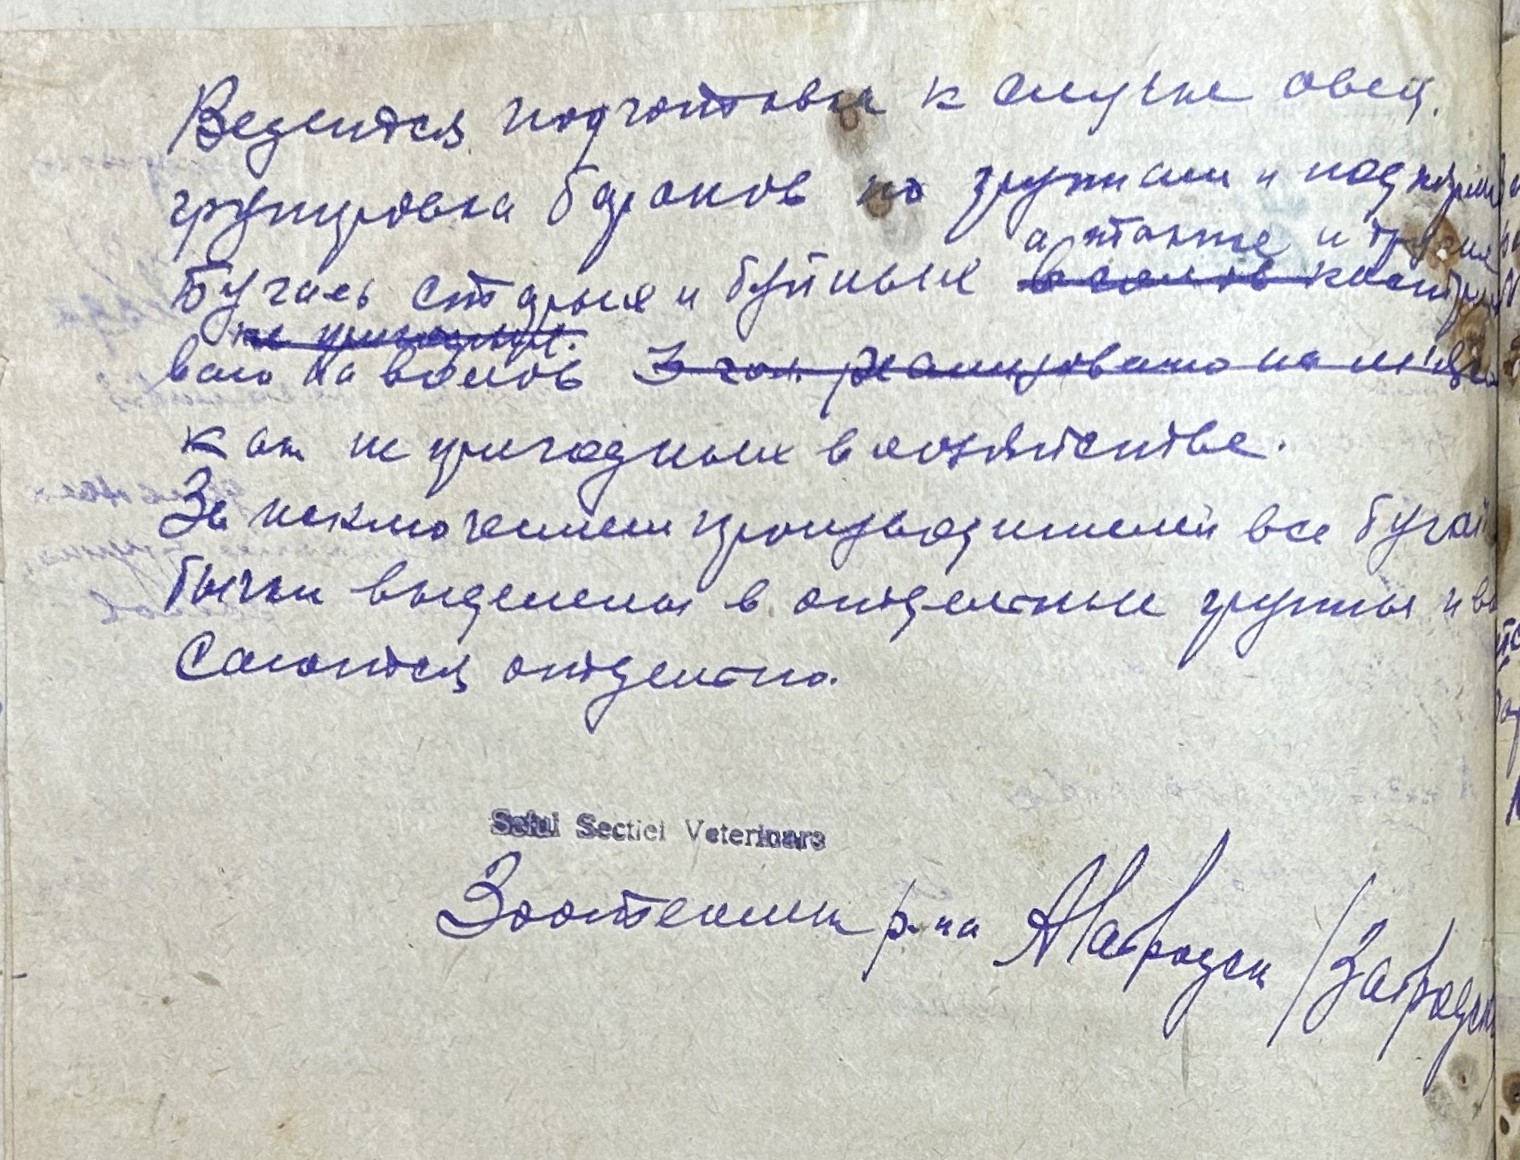 Ведется подготовка к случке овец.
группровка баранов по групам и подкорм
а также и других
Бугаев старых и буйных волов кастриро
не пригодных.
вано на волов 3 гол. реализовано на мясо
как не пригодных в хозяйстве.
За исключением производителей все бугаи
бычки выделены в отдельные группы и вы
саются отдельно.
Seful Sectiei Veterinare
Зоотехник р-на /Забродск